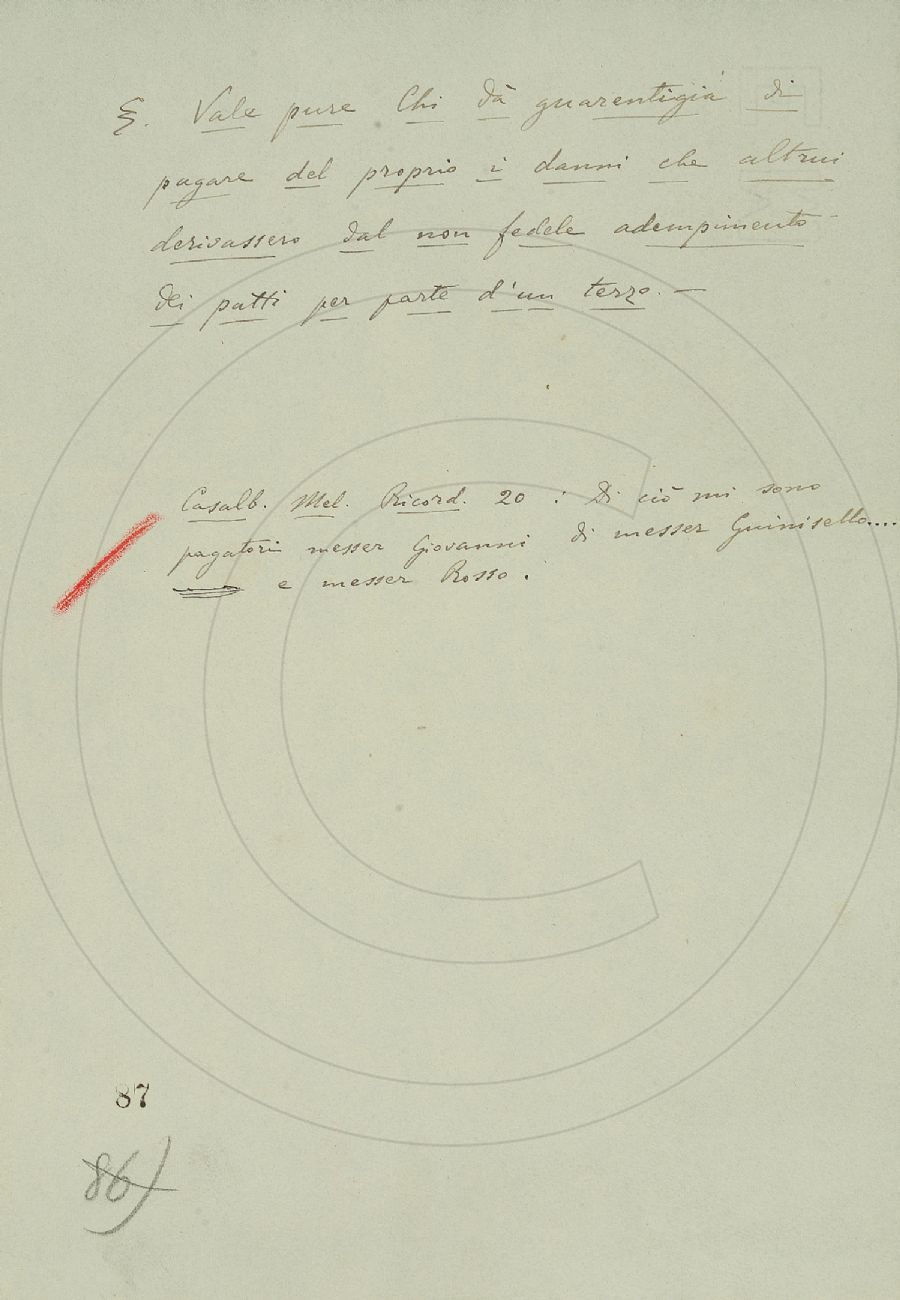 §. Vale pure Chi dà guarentigia di
pagare del proprio i danni che altrui
derivassero dal non fedele adempimento
dei patti per parte d'un terzo. —
Casalb. Mel. Ricord. 20 : Di ciò mi sono
pagatori messer Giovanni di messer Guinisello....
e messer Rosso.
87
86)